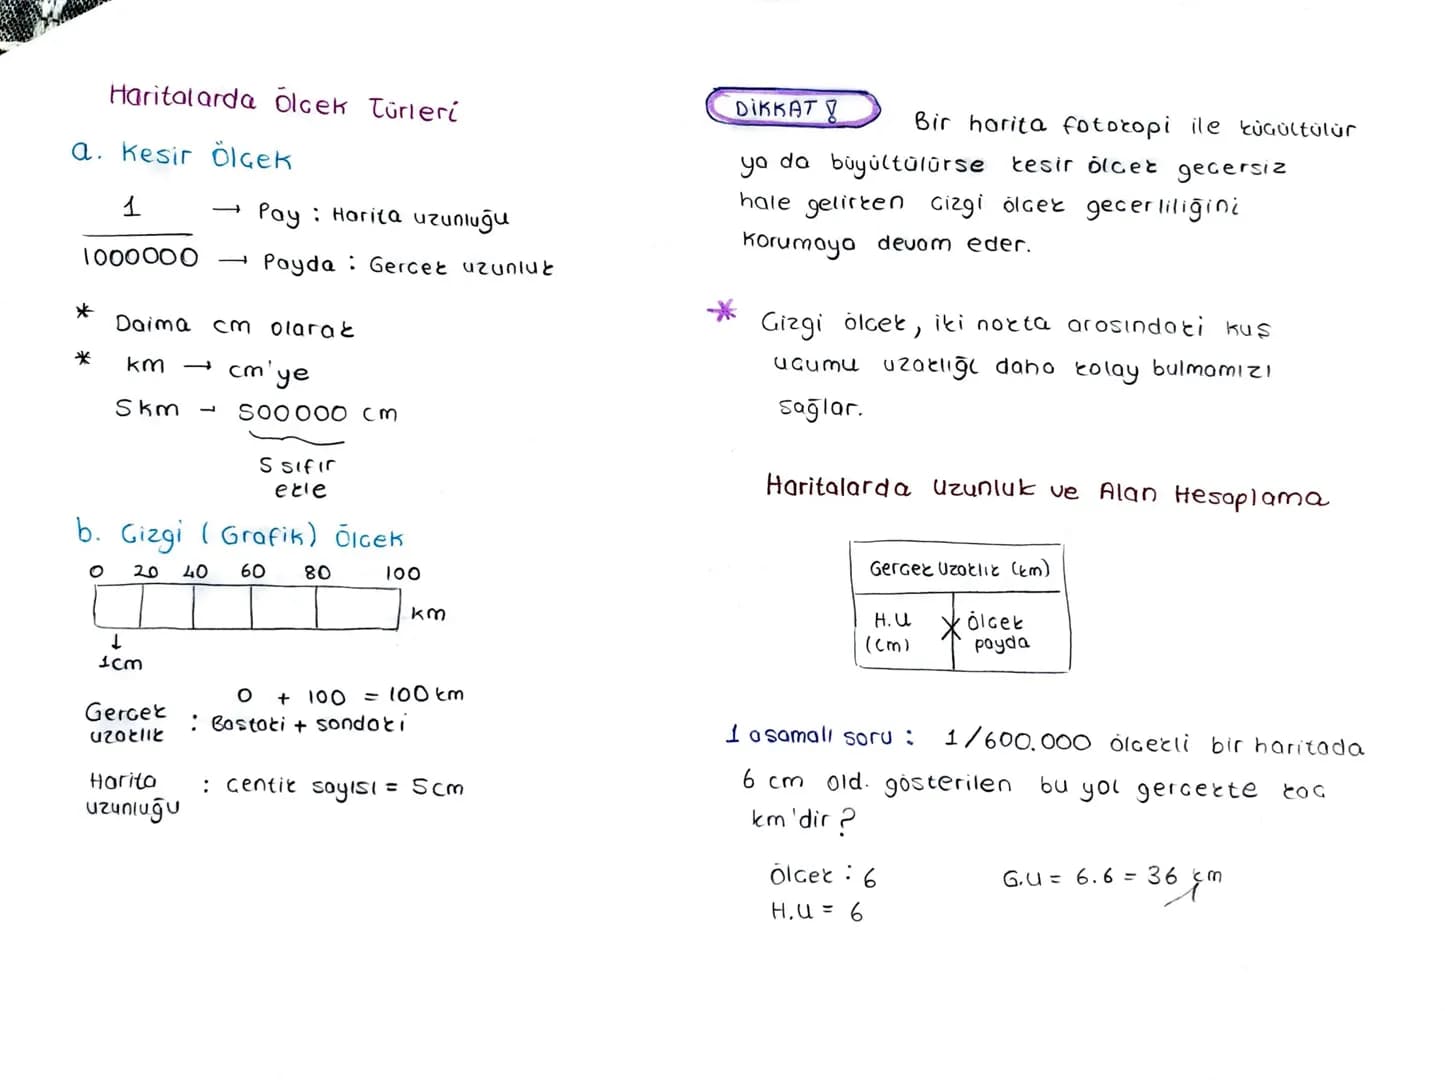 Haritalarda Ölçek Türleri
a. Kesir Ölçek
1 → Pay : Harita uzunluğu
1000000 → Payda : Gerçek uzunluk
* Daima cm olarak
* km → cm'ye
5km → 500000 cm
5 sıfır
ekle
b. Çizgi ( Grafik) Ölçek
0 20 40 60 80 100
km
↓
1cm
0 + 100 = 100 km
Gerçek uzaklık : Baştaki + sondaki
Harita uzunluğu : Çentik sayısı = 5cm
DİKKAT !
Bir harita fotokopi ile küçültülür
ya da büyültülürse kesir ölçek geçersiz
hale gelirken çizgi ölçek geçerliliğini
korumaya devam eder.
* Çizgi ölçek, iki nokta arasındaki kuş
uçumu uzaklığı daha kolay bulmamızı
sağlar.
Haritalarda Uzunluk ve Alan Hesaplama
Gerçek Uzaklık (km)
H.U × Ölçek
(cm) payda
1 aşamalı soru : 1/600.000 ölçekli bir haritada
6 cm old. gösterilen bu yol gerçekte kaç
km'dir ?
Ölçek : 6 G.U = 6.6 = 36 km
H.U = 6